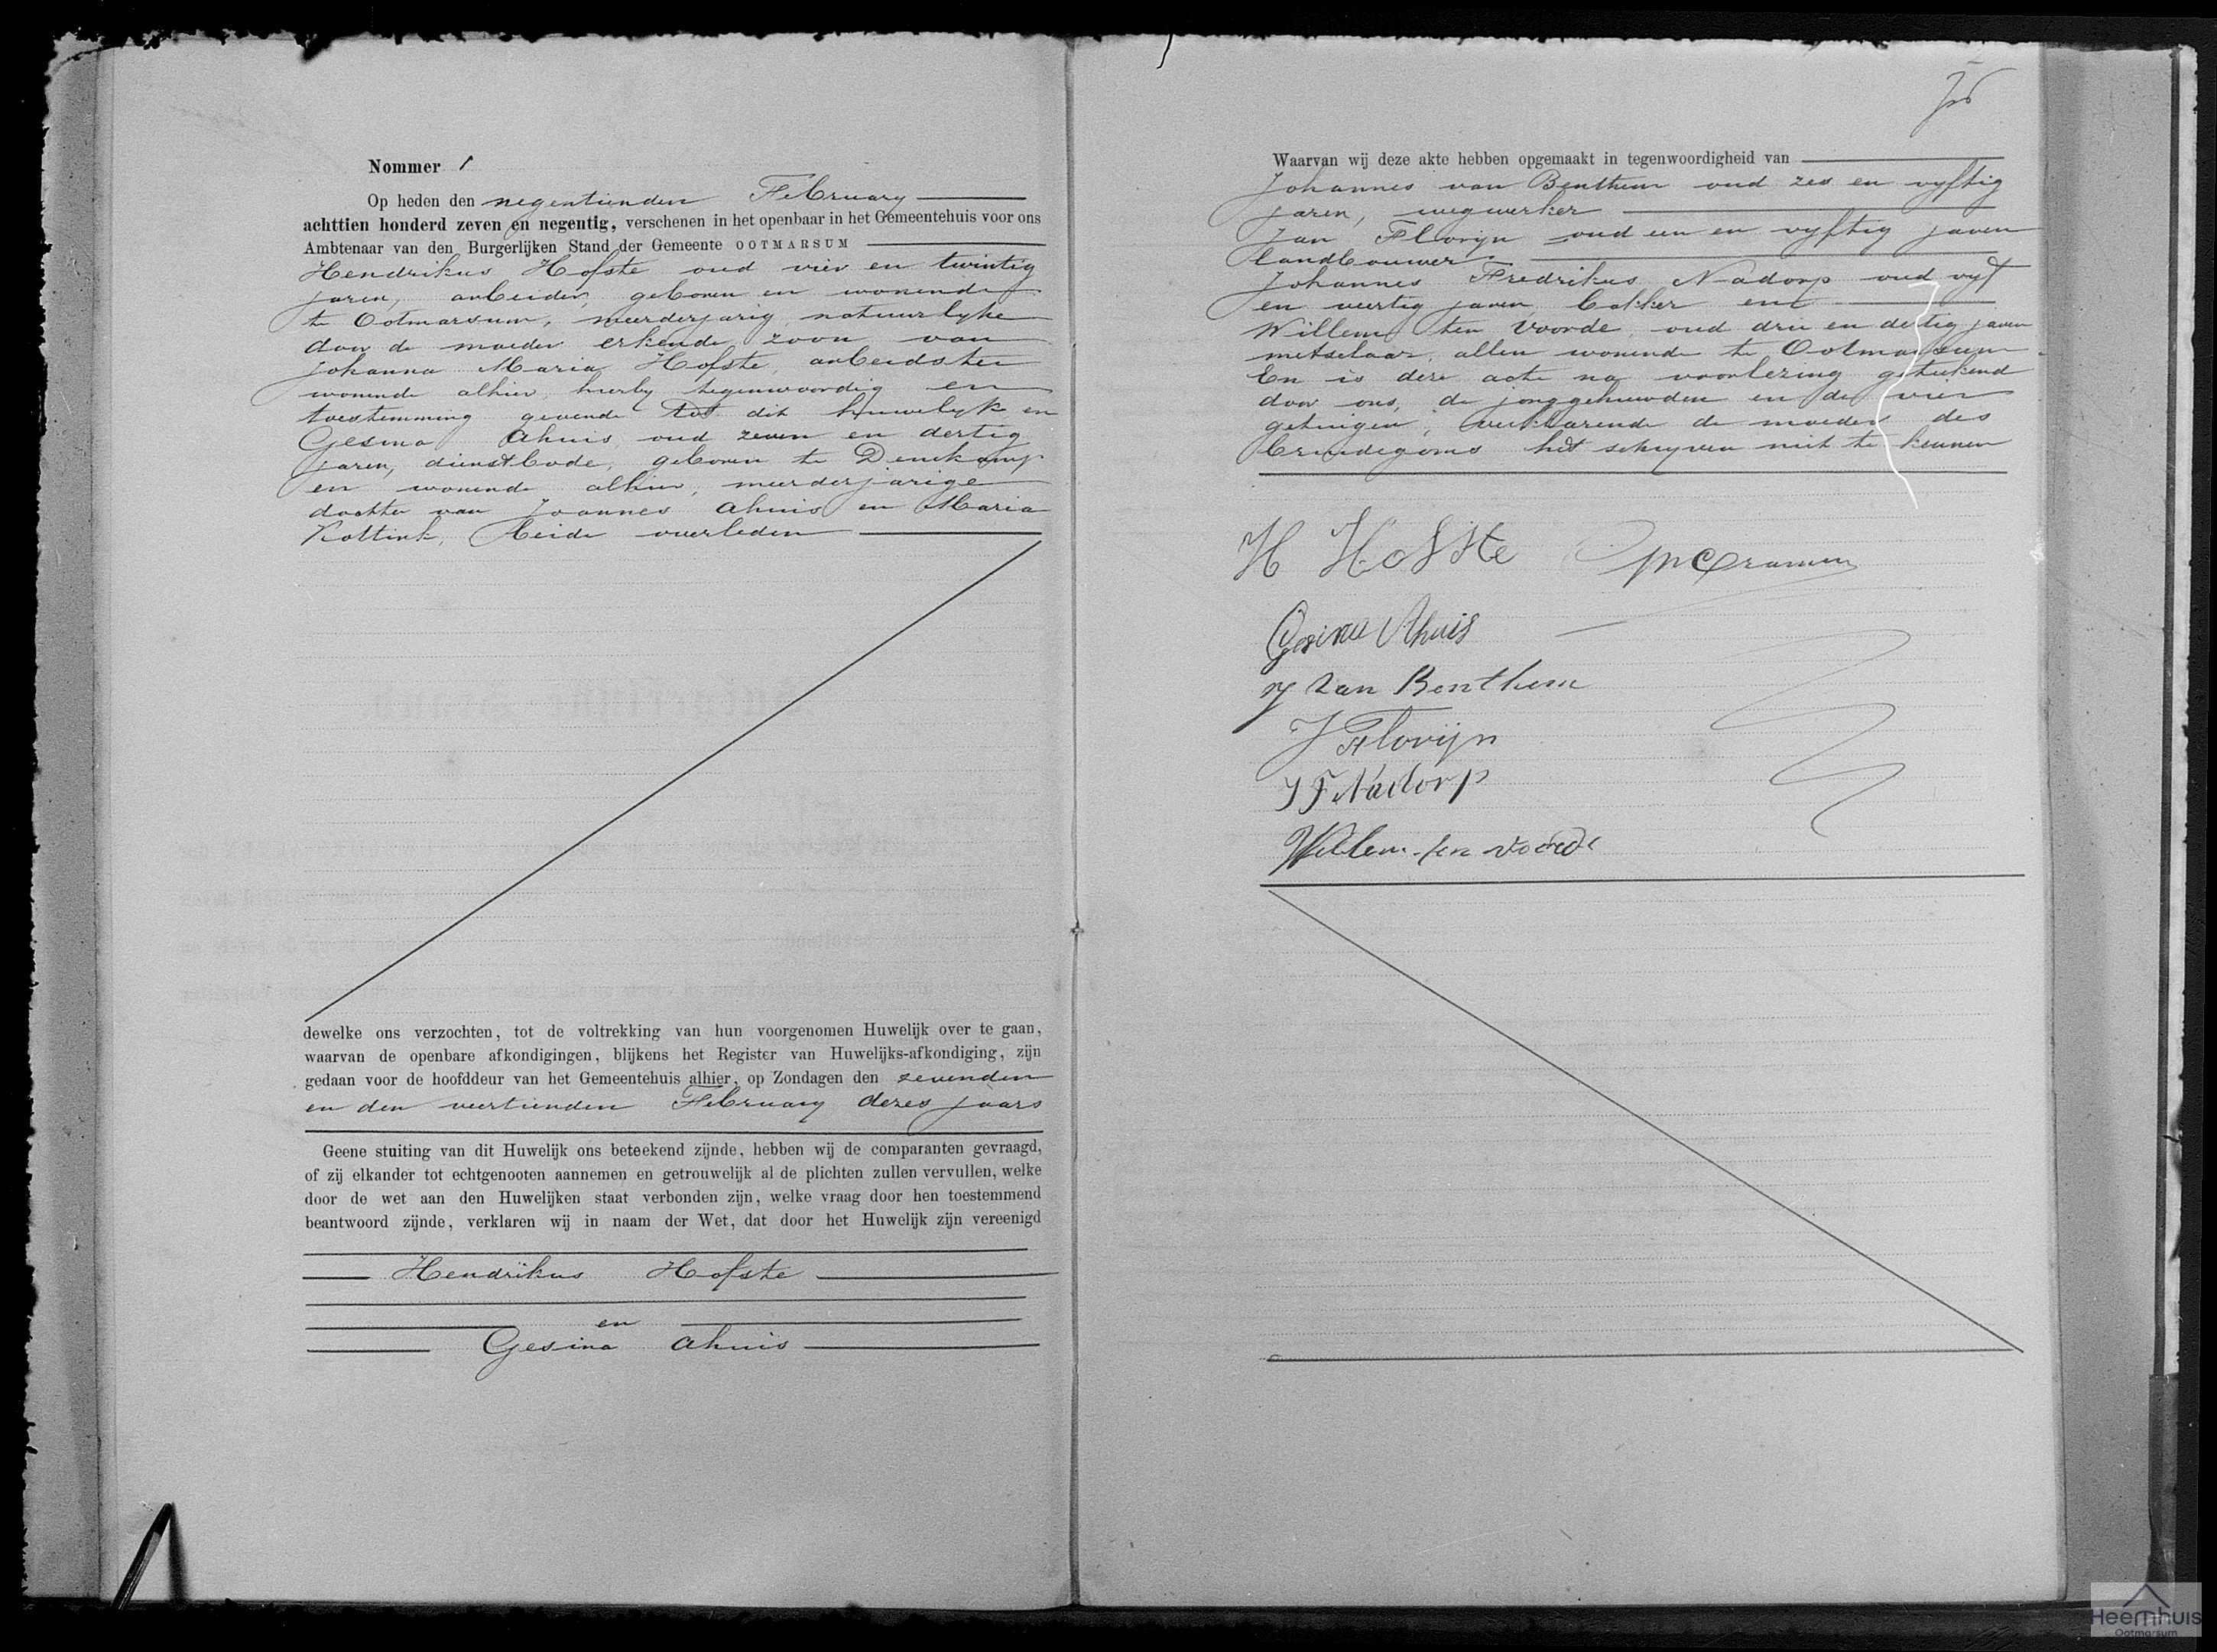 Nommer 1
Op heden den negentienden February
achttien honderd zeven en negentig, verschenen in het openbaar in het Gemeentehuis voor ons
Ambtenaar van den Burgerlijken Stand der Gemeente OOTMARSUM
Hendrikus Hofste oud vier en twintig
jaren, arbeider, geboren en wonende
te Ootmarsum, meerderjarig, natuurlyke
door de moeder erkende zoon van
Johanna Maria Hofste, arbeidster
wonende alhier, hierby tegenwoordig en
toestemming gevende tot dit huwelyk en
Gesina Ahuis oud zeven en dertig
jaren, dienstbode, geboren te Denekamp
en wonende alhier, meerderjarige
dochter van Joannes Ahuis en Maria
Kottink, beide overleden
dewelke ons verzochten, tot de voltrekking van hun voorgenomen Huwelijk over te gaan,
waarvan de openbare afkondigingen, blijkens het Register van Huwelijks-afkondiging, zijn
gedaan voor de hoofddeur van het Gemeentehuis alhier, op Zondagen den zevenden
en den veertienden February dezes jaars
Geene stuiting van dit Huwelijk ons beteekend zijnde, hebben wij de comparanten gevraagd,
of zij elkander tot echtgenooten aannemen en getrouwelijk al de plichten zullen vervullen, welke
door de wet aan den Huwelijken staat verbonden zijn, welke vraag door hen toestemmend
beantwoord zijnde, verklaren wij in naam der Wet, dat door het Huwelijk zijn vereenigd
Hendrikus Hofste
en
Gesina Ahuis
Waarvan wij deze akte hebben opgemaakt in tegenwoordigheid van
Johannes van Benthem oud zes en vyftig
jaren, wegwerker
Jan Florijn oud een en vyftig jaren
landbouwer,
Johannes Fredrikus Nadorp oud vyf
en veertig jaren, bakker en
Willem ten Voorde, oud drie en dertig jaren
metselaar, allen wonende te Ootmarsum.
En is deze acte na voorlezing geteekend
door ons, de jonggehuwden en de vier
getuigen, verklarende de moeder des
bruidegoms het schryven niet te kennen
H Hofste
Gesina Ahuis
J van Benthem
J Florijn
J F Nadorp
Willem ten Voorde
Heemhuis
Ootmarsum